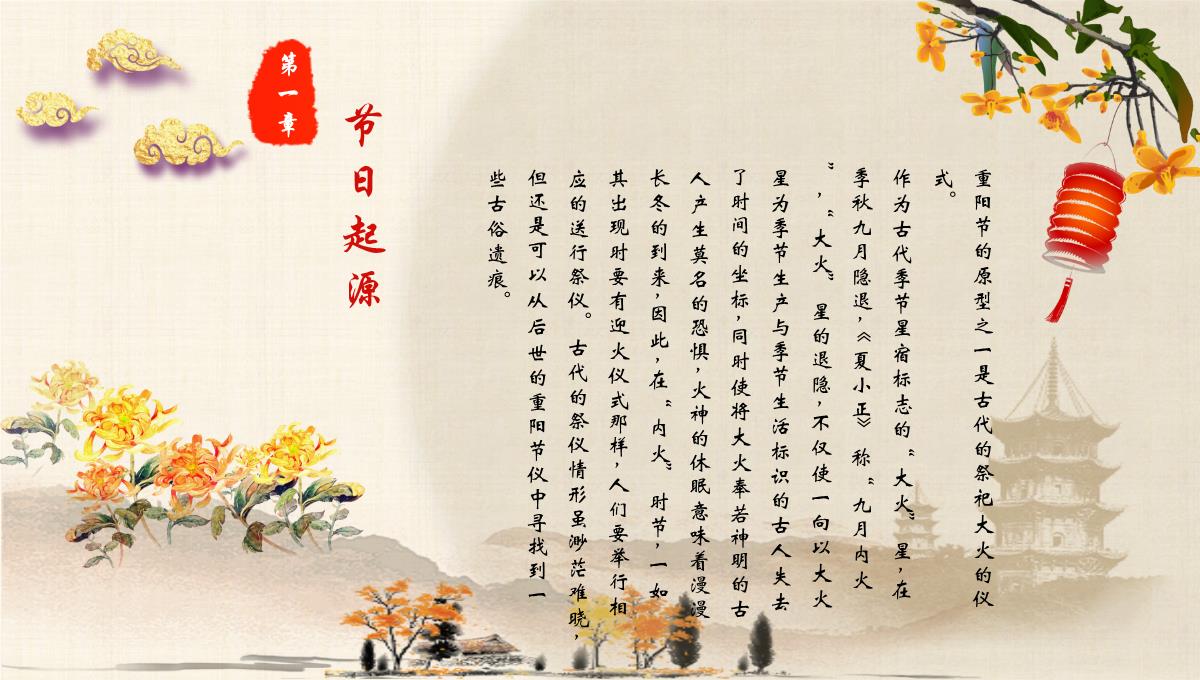 第一章
节日起源
重阳节的原型之一是古代的祭祀大火的仪
式。
作为古代季节星宿标志的“大火”星，在
季秋九月隐退，《夏小正》称“九月内火
”，“大火”星的退隐，不仅使一向以大火
星为季节生产与季节生活标识的古人失去
了时间的坐标，同时使将大火奉若神明的古
人产生莫名的恐惧，火神的休眠意味着漫漫
长冬的到来，因此，在“内火”时节，一如
其出现时要有迎火仪式那样，人们要举行相
应的送行祭仪。古代的祭仪情形虽渺茫难晓，
但还是可以从后世的重阳节仪中寻找到一
些古俗遗痕。